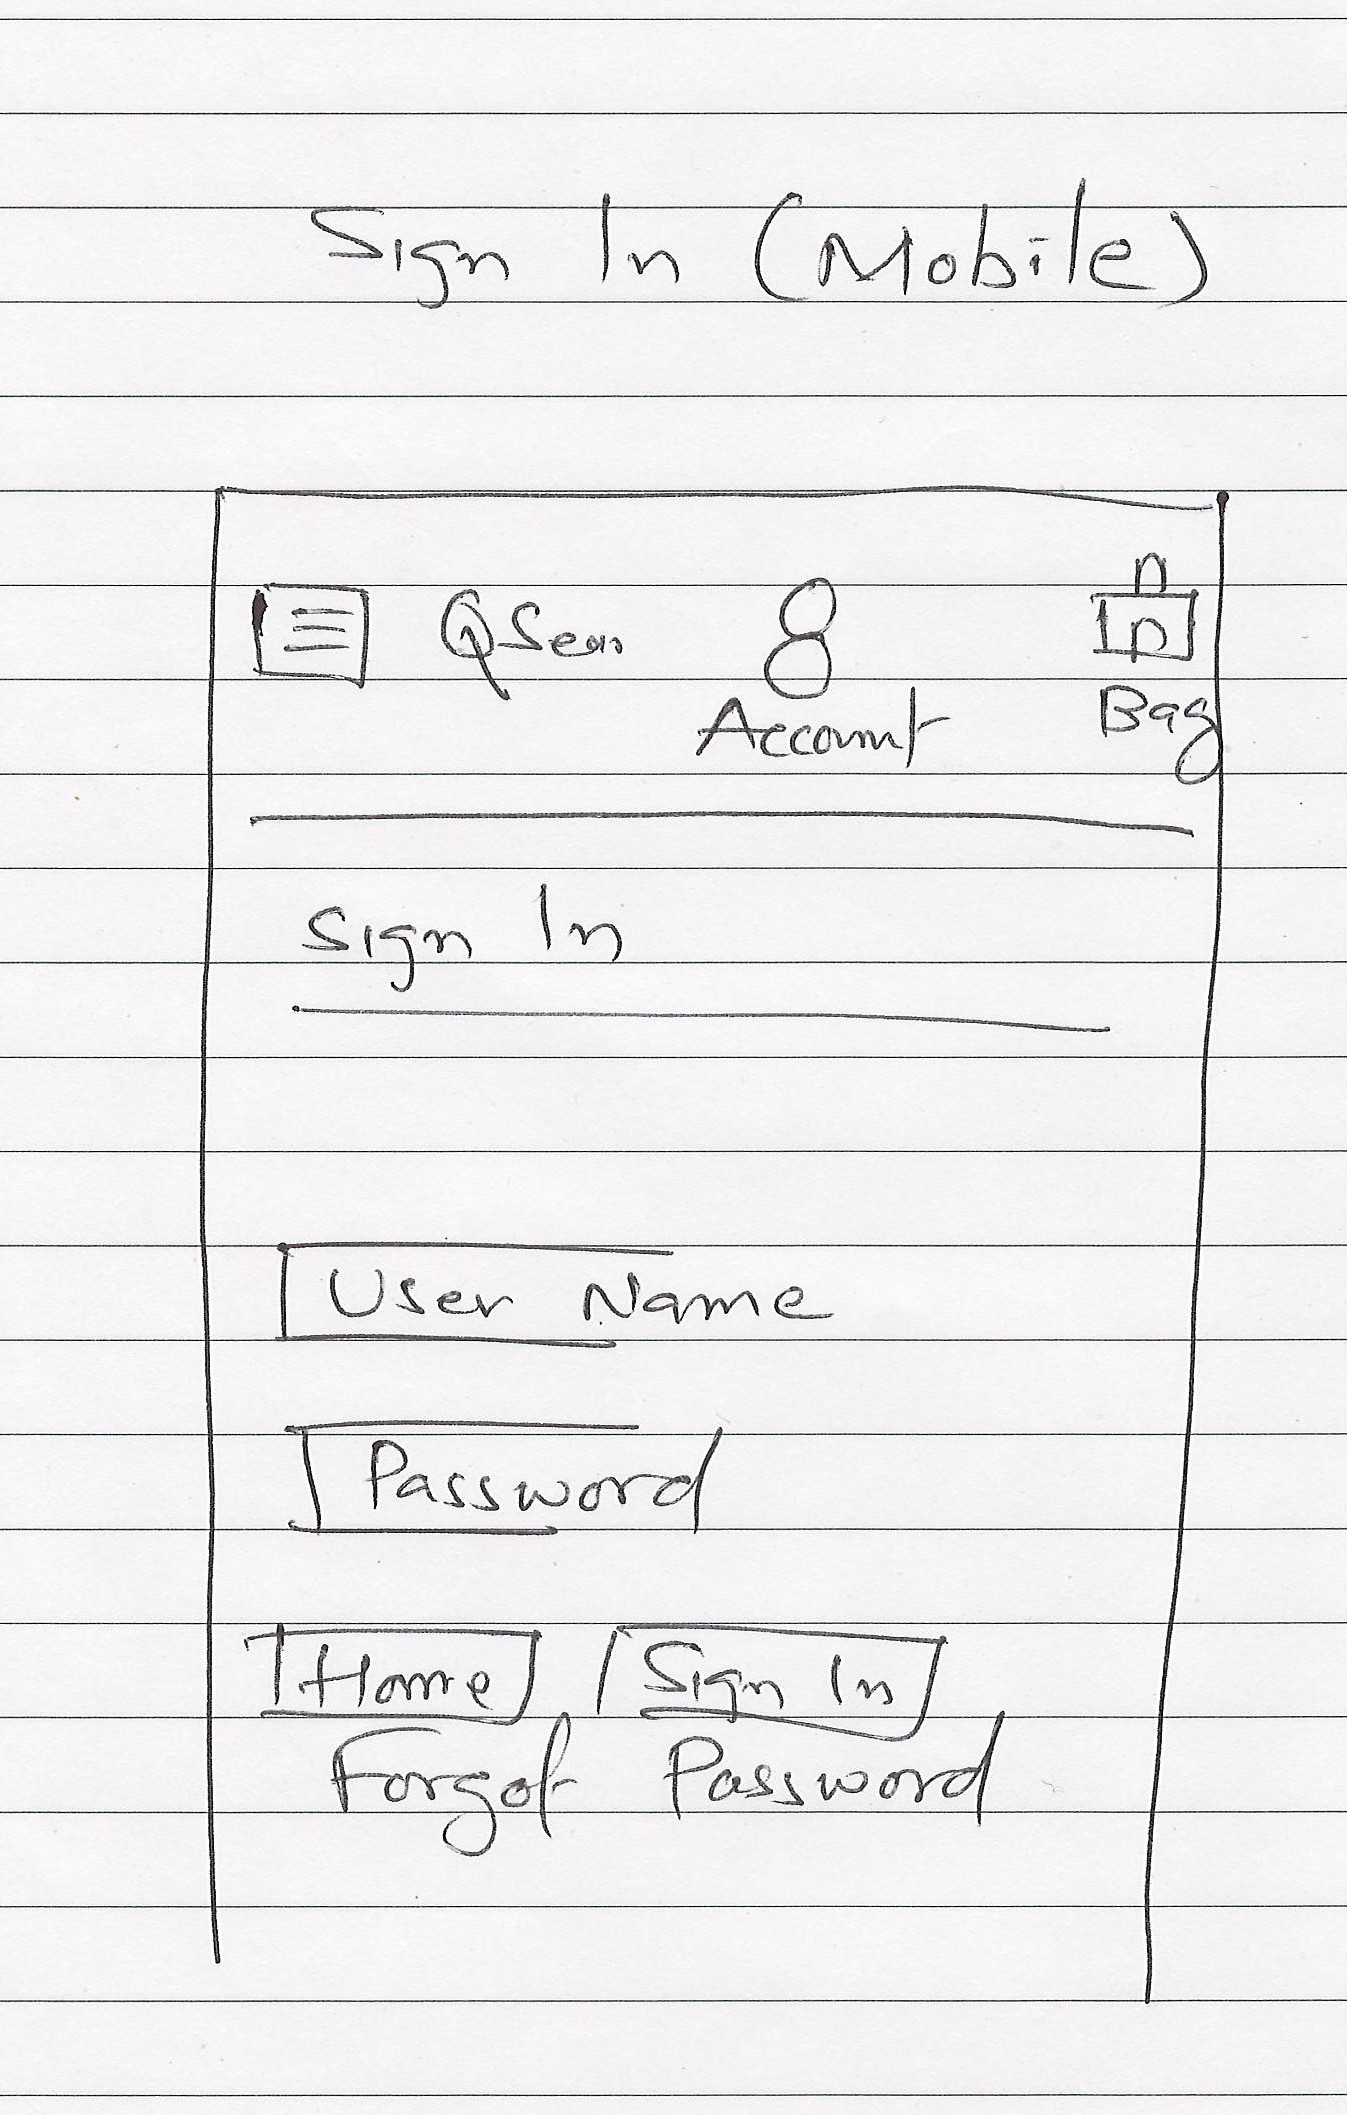 Sign In (Mobile)
Sear
Account
Bag
Sign In
User Name
Password
Home Sign In
Forgot Password